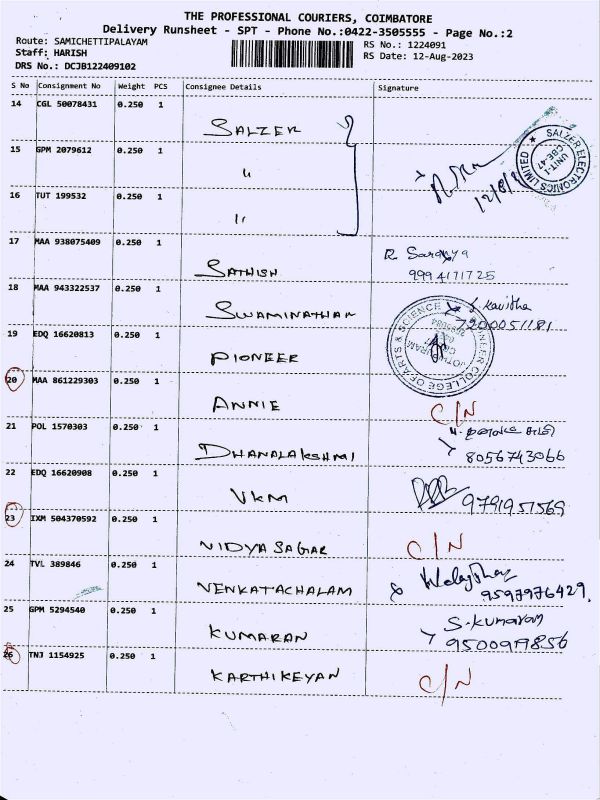 THE PROFESSIONAL COURIERS, COIMBATORE
Delivery Runsheet - SPT - Phone No.:0422-3505555 - Page No.:2
Route: SAMICHETTIPALAYAM
Staff: HARISH
DRS No.: DCJB122409102
RS No.: 1224091
RS Date: 12-Aug-2023
S No Consignment No Weight PCS Consignee Details Signature
14 CGL 50078431 0.250 1 SALZER
SALZER ELECTRONICS LIMITED ★ UNIT-I CBE-47
15 GPM 2079612 0.250 1 "
16 TUT 199532 0.250 1 "
12/8/
17 MAA 938075409 0.250 1 SATHISH R Saranya
9994171725
18 MAA 943322537 0.250 1 SWAMINATHAN S. Kavitha
7200051181
19 EDQ 16620813 0.250 1 PIONEER
PIONEER COLLEGE OF ARTS & SCIENCE
20 MAA 861229303 0.250 1 ANNIE C/N
21 POL 1570303 0.250 1 DHANALAKSHMI
8056743066
22 EDQ 16620908 0.250 1 VKM 9791951569
23 IXM 504370592 0.250 1 VIDYA SAGAR C/N
24 TVL 389846 0.250 1 VENKATACHALAM
9597976429.
25 GPM 5294540 0.250 1 KUMARAN S. Kumaran
9500979856
26 TNJ 1154925 0.250 1 KARTHIKEYAN C/N